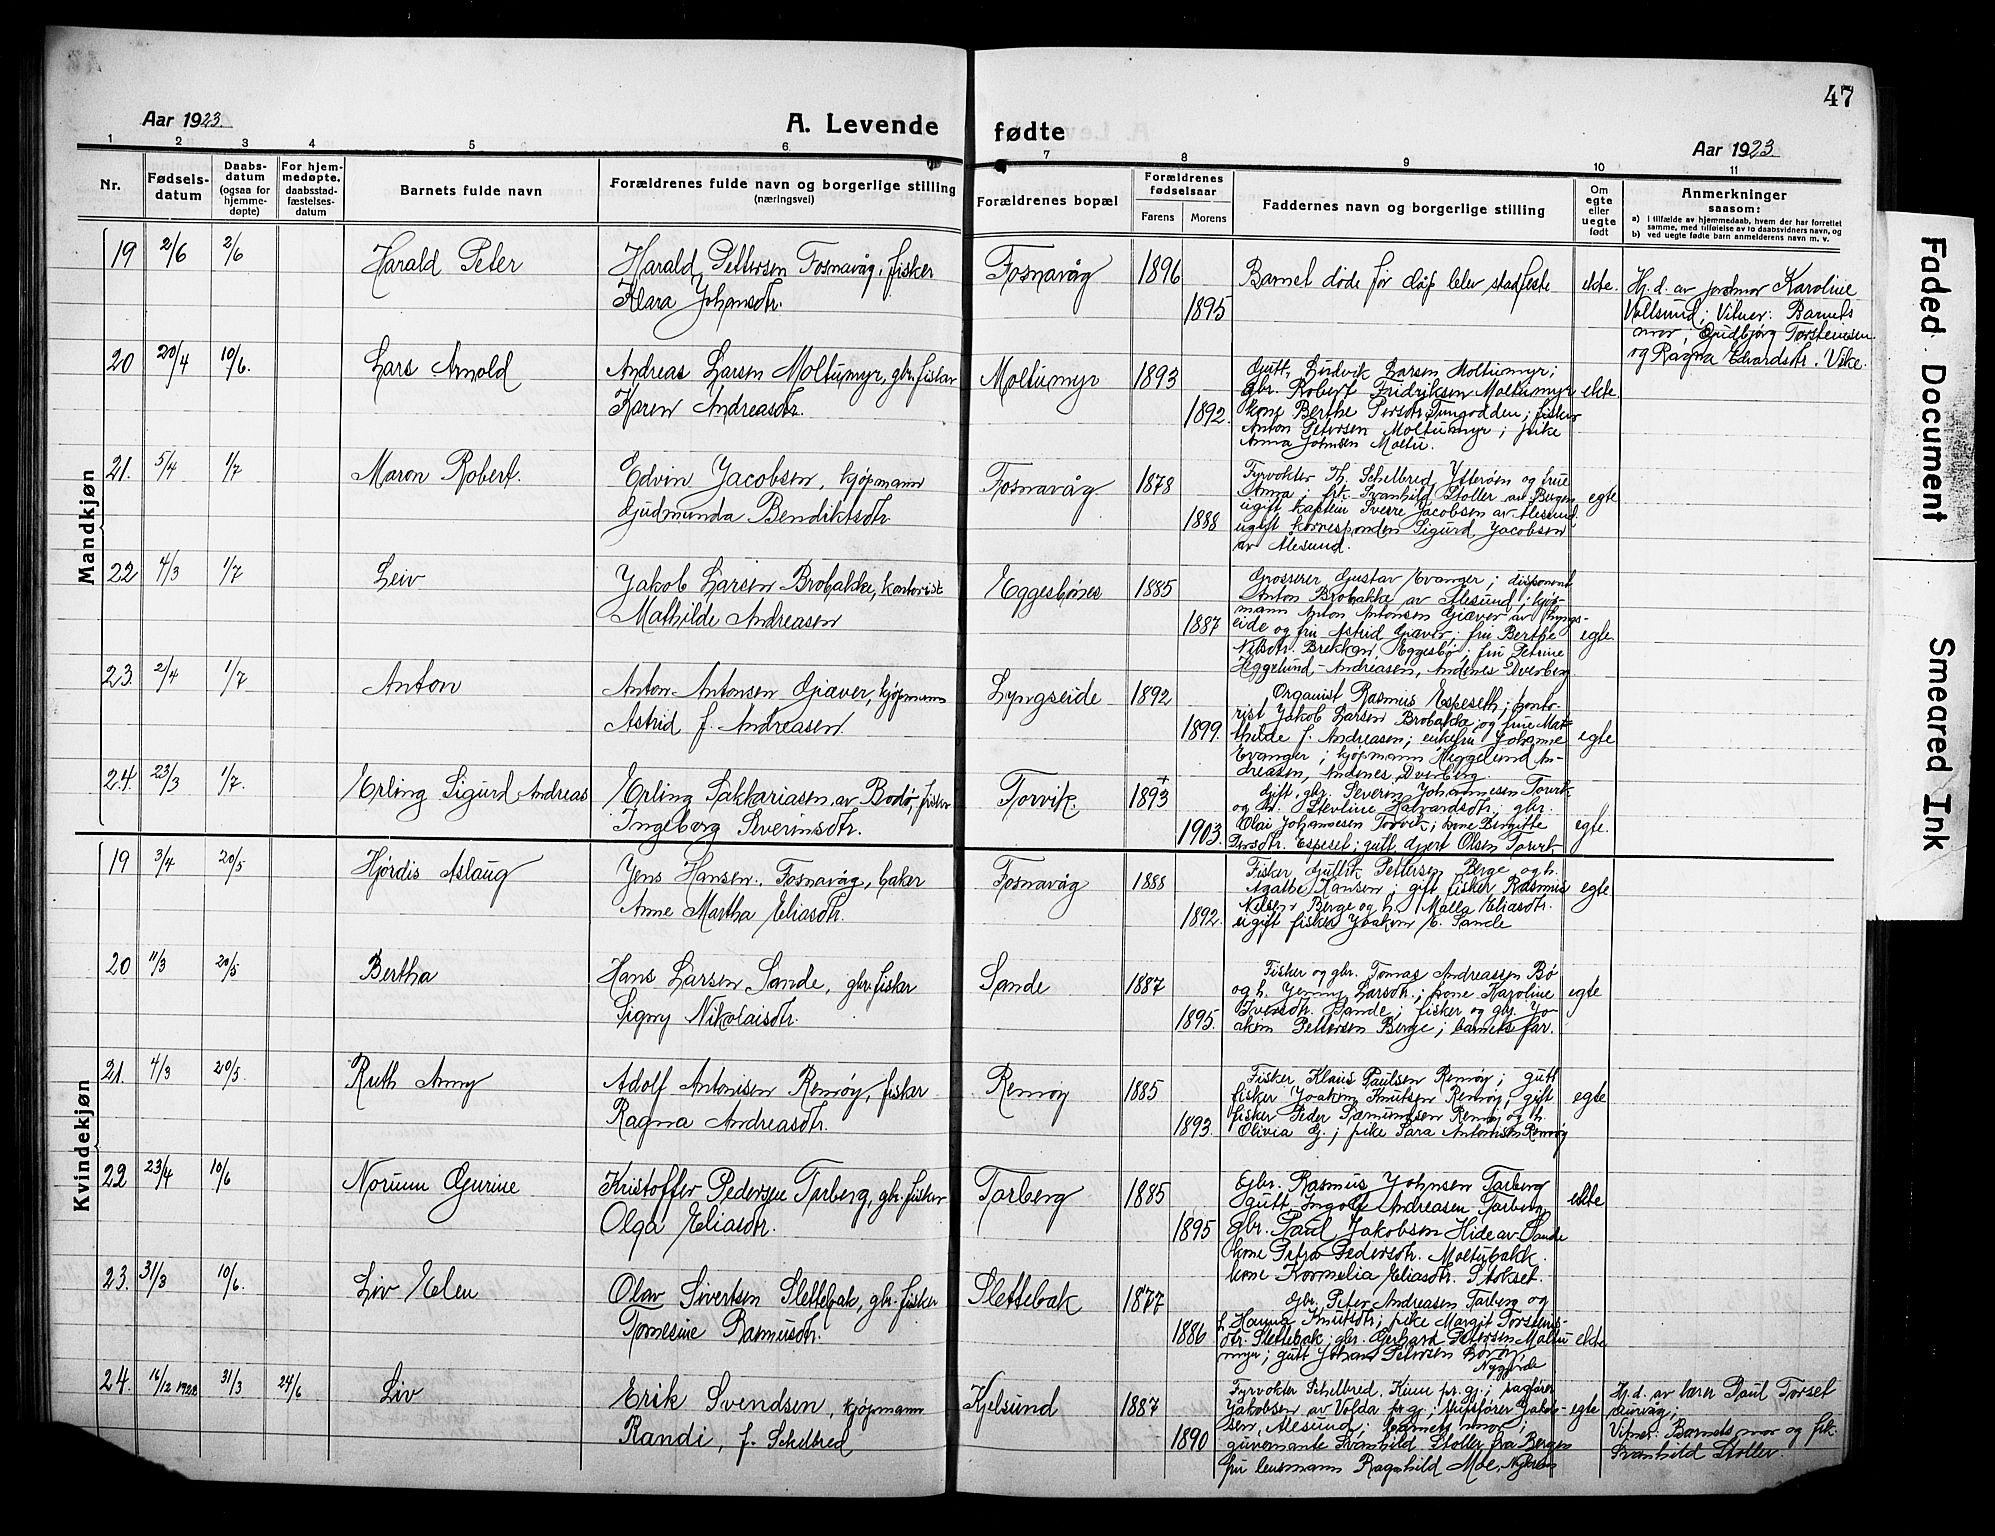 47
Aar 1923.
A. Levende fødte
Aar 1923.
1 2 3 4 5 6 7 8 9 10 11
Nr.
Fødsels-
datum
Daabs-
datum
(ogsaa for
hjemme-
døpte)
For hjem-
medøpte.
daabsstad-
fæstelses-
datum
Barnets fulde navn
Forældrenes fulde navn og borgerlige stilling
(næringsvei)
Forældrenes bopæl
Forældrenes
fødselsaar
Farens Morens
Faddernes navn og borgerlige stilling
Om
egte
eller
uegte
født
Anmerkninger
saasom:
a) i tilfælde av hjemmedaab, hvem der har forrettet
samme, med tilføielse av to daabsvidners navn, og
b) ved uegte fødte barn anmelderens navn m. v.
Mandkjøn
19 2/6 2/6 Harald Peter
Harald Pettersen Fosnavåg, fisker
Klara Johansdtr.
Fosnavåg 1896
1895
Barnet døde før dåp blev stadfestet
ekte.
Hj. d. av jordmor Karoline
Voldsund; Vitner: Barnets
mor, Gudbjørg Torsteinsen
og Ragna Edvardsdtr. Vike.
20 20/4 10/6. Lars Arnold
Andreas Larsen Moltumyr, gbr. fisker
Karen Andreasdtr.
Moltumyr 1893
1892.
Gutt, Ludvik Larsen Moltumyr;
gbr. Robert Fridriksen Moltumyr
kone Berthe Persdtr. Tungodden; fisker
Anton Petersen Moltumyr; pike
Anna Johnsen Moltu.
ekte
21. 5/4 1/7 Maron Robert.
Edvin Jacobsen, kjøpmann
Gudmunda Bendiktsdtr.
Fosnavåg. 1878
1888
Fyrvokter Th. Schelbred Ytterøen og frue
Anna; frk. Svanhild Stoller av Bergen
ugift kaptein Sverre Jacobsen av Ålesund
ugift korresponden Sigurd Jacobsen
av Ålesund.
egte
22 4/3 1/7 Leiv
Jakob Larsen Brobakke, kontorist
Mathilde Andreasen
Eggesbønes 1885
1887
Grosserer Gustav Evanger; disponent
Anton Brobakke av Ålesund; kjøp-
mann Anton Antonsen Giæver av Lyngs-
eide og fru Astrid Giæver; fru Berthe
Nilsdtr. Brekkan Eggesbø; fru Petrine
Heggelund-Andreasen, Andenes Dverberg
egte
23. 2/4 1/7 Anton
Anton Antonsen Giæver, kjøpmann
Astrid f. Andreasen.
Lyngseide 1892
1899.
Organist Rasmus Espeseth; konto-
rist Jakob Larsen Brobakke og frue Mat-
hilde f. Andreasen; enkefru Johanne
Evanger; kjøpmann Heggelund An-
dreasen, Andenes, Dverberg.
egte
24. 23/3 1/7. Erling Sigurd Andreas
Erling Sakkariasen av Bodø, fisker
Ingeborg Severinsdtr.
Torvik. 1893
1903.
Gift, gbr. Severin Johannesen Torvik
og h. Stevline Halvardsdtr; gbr.
Olai Johansen Torvik; kone Bergitte
Persdtr. Espeset; gutt Gjert Olsen Torvik
egte.
Kvindekjøn
19 3/4 20/5 Hjørdis Aslaug
Jens Hansen, Fosnavåg, baker
Anne Martha Eliasdtr.
Fosnavåg 1888
1892.
Fisker Guttrk Pettersen Berge og h.
Agathe Hansen; gift fisker Rasmus
Nilsen Berge og h. Malla Eliasdtr.
ugift fisker Joakim E. Sande
egte
20 11/3 20/5 Bertha
Hans Larsen Sande, gbr. fisker
Signy Nikolaisdtr.
Sande 1887
1895.
Fisker og gbr. Tomas Andreassen Bø
og h. Jenny Larsdtr.; kone Karoline
Iversdtr. Sande; fisker og gbr. Jo-
akim Pettersen Berge; barnets far.
egte
21. 4/3 20/5. Ruth Anny
Adolf Antonisen Remøy, fisker
Ragna Andreasdtr.
Remøy 1885
1893.
Fisker, Klaus Paulsen Remøy; gutt
fisker Joakim Knutsen Remøy; gift
fisker Peder Sæmundsen Remøy og h.
Olivia G.; pike Sara Antonisen Remøy
egte
22 23/4 10/6 Norunn Gurine
Kristoffer Pedersen Tarberg, gbr. fisker
Olga Eliasdtr.
Tarberg 1885
1895
Gbr. Rasmus Johnsen Tarberg
gutt Ingolf Andreasen Tarberg,
gbr. Paul Jakobsen Hide av Sande
kone Petra Pedersdtr. Moltubakk.
kone Kornelia Eliasdtr. Stokset.
ekte
23. 31/3 10/6. Liv Elen
Olav Sivertsen Slettebak, gbr. fisker
Tomesine Rasmusdtr.
Slettebak 1877
1886
Gbr. Peter Andreasen Tarberg og
h. Hanna Knutsdtr; pike Margit Torsteins-
dtr. Slettebak; gbr. Gerhard Petersen Moltu
myr; gutt Johan Petersen Borøy,
Nygjerde
ekte
24. 16/12 1922 31/3 24/6 Liv
Erik Svendsen, kjøpmann
Randi, f. Schelbred
Kjelsund 1887
1890
Fyrvokter Schelbred. Kinn pr. gj.; sagfører
Jakobsen av Volda pr. gj.; skibsfører Jakob-
sen, Ålesund; barnets mor;
guvernante Svanhild Stoller fra Bergen
fru lensmann Ragnhild Moe,
egte
Hj. d. av lærer Paul Torset
Vitner: Barnets mor og frk.
Svanhild Stoller.
Faded Document
Smeared Ink